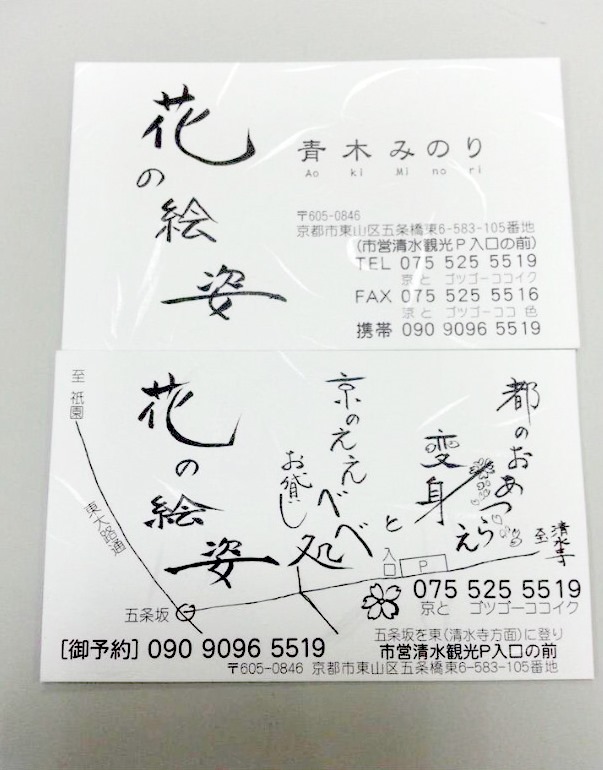 花の絵姿
青木みのり
Ao ki Mi no ri
〒605-0846
京都市東山区五条橋東6-583-105番地
(市営清水観光P入口の前)
TEL 075 525 5519
京と ゴッゴーココイク
FAX 075 525 5516
京と ゴッゴーココ 色
携帯 090 9096 5519
都のおあつらえ
変身と
京のええべべ
お貸し処
花の絵姿
至 祇園
東大路通
五条坂
入口
P
至 清水寺
075 525 5519
京と ゴッゴーココイク
五条坂を東(清水寺方面)に登り
[御予約] 090 9096 5519
市営清水観光P入口の前
〒605-0846 京都市東山区五条橋東6-583-105番地